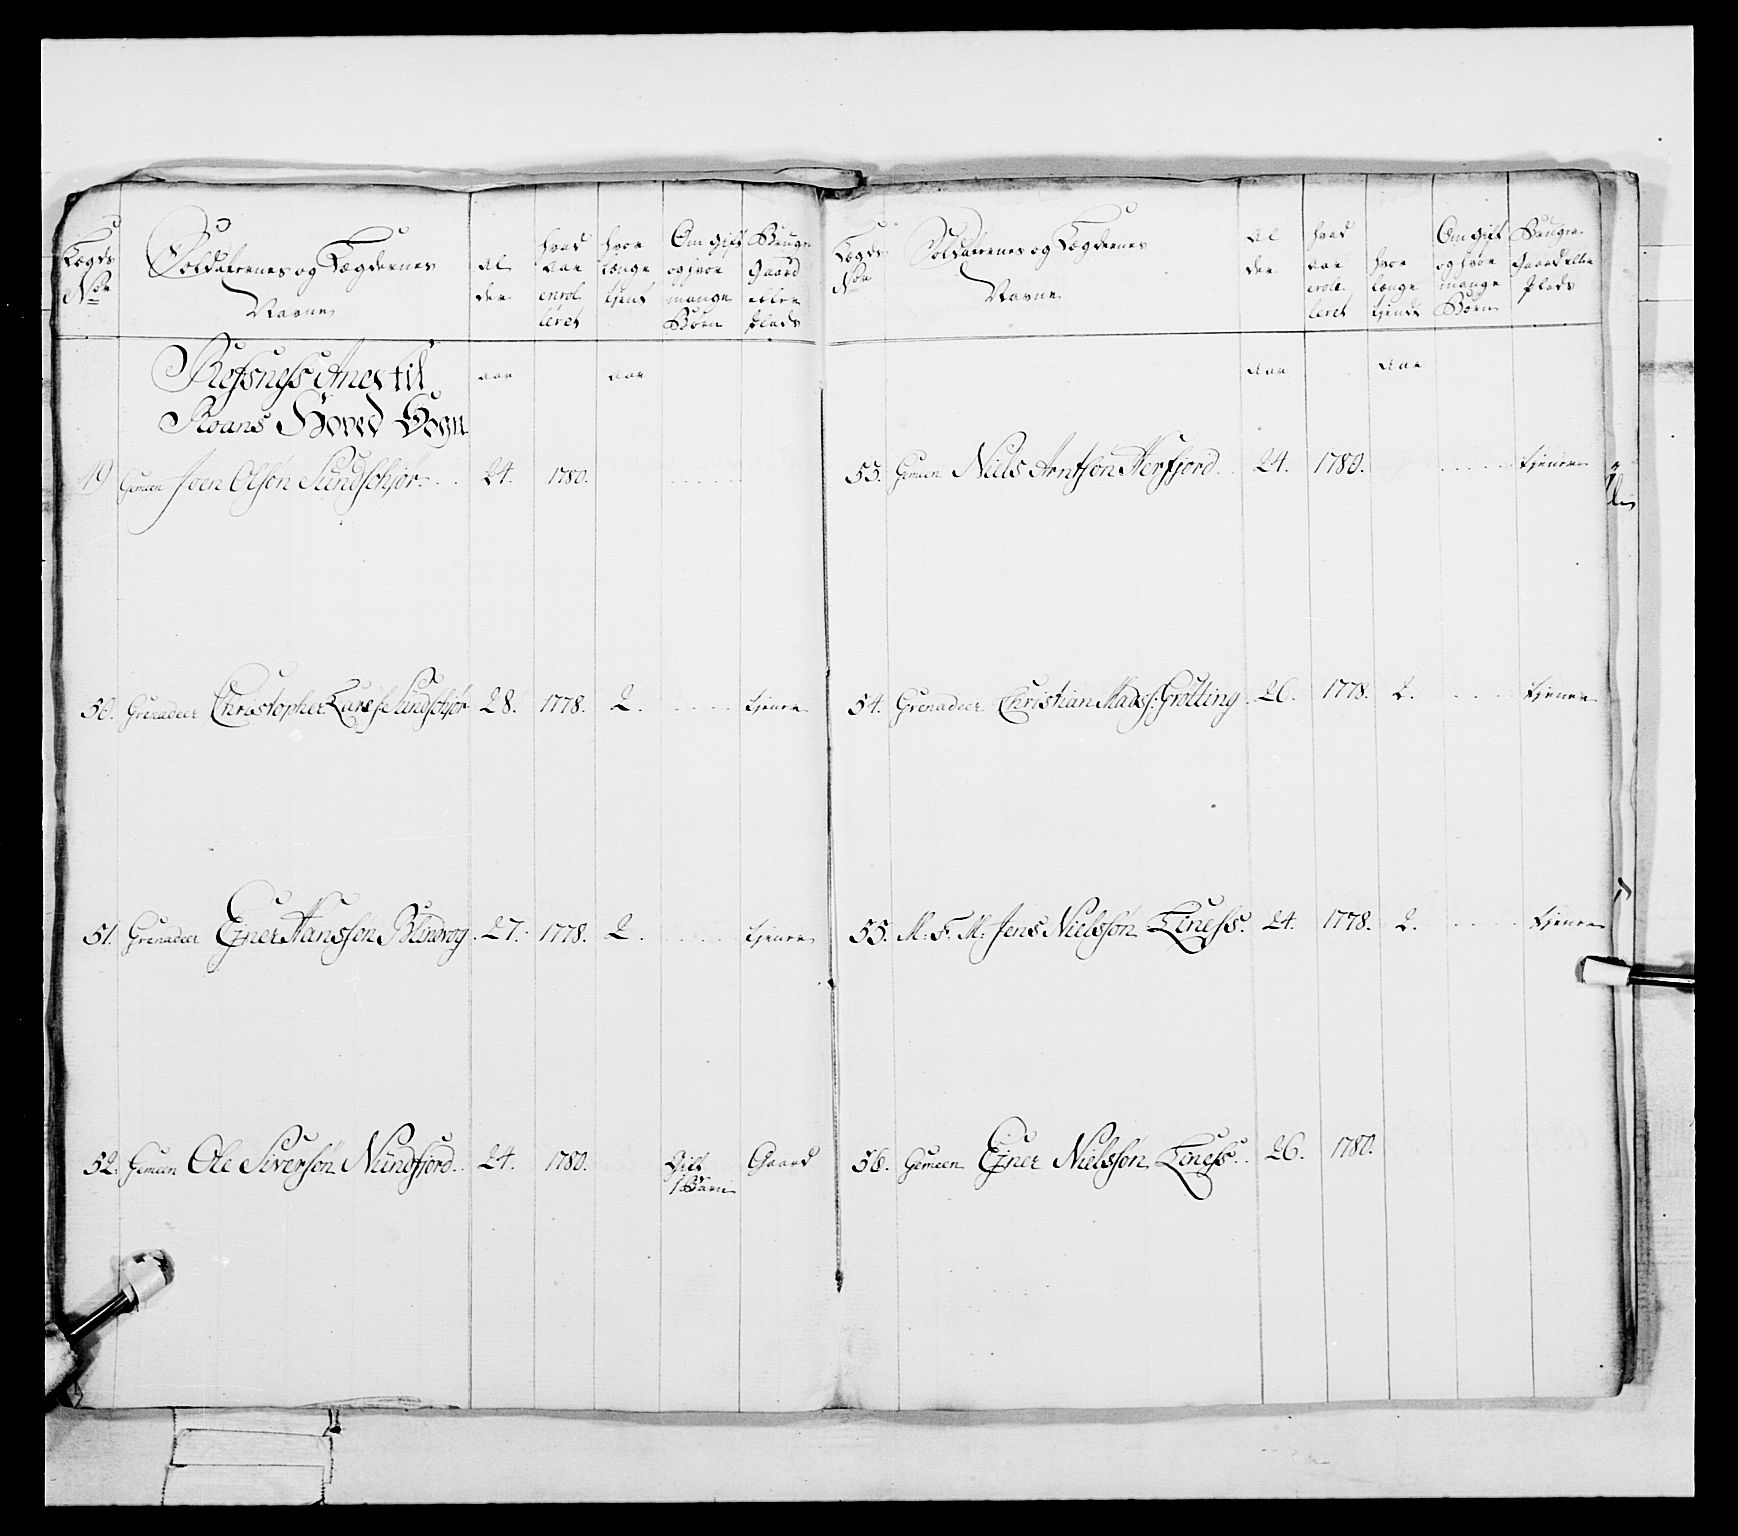 Lægds Nor
Soldaternes og Lægdernes Navne
Al der
hvad Aar enrol leret
hvor længe tjent
Om gift og hvor mange Børn
Bruger Gaard eller Plads
Refsness Annex til
Roans Hoved Sogn
aar aar
49 Gemeen Joen Olsøn Sundschjør 24. 1780.
50. Grenadeer Christopher Larss: Sundschjør 28. 1778. 2. tjener
51. Grenadeer Ejner Hansson 27. 1778. 2. tjener
52. Gemeen Ole Siversøn Nundfjord 24. 1780. Gift 1 Barn Gaard
Lægds Nor
Soldaternes og Lægdernes Navne
Al der
hvad Aar enrolleret
hvor længe tjendt
Om gift og hvor mange Børn
Bruger Gaard eller Plads
Aar Aar
53. Gemeen Niels Arntson Herfjord 24. 1780. tjener
54. Grenadeer Christian Madss: Grøtting 26. 1778. 2. tjener
55. M. F. M. Jens Nielssøn Liness. 24. 1778. 2. tjener
56. Gemeen Ejner Nielssøn Liness. 26. 1780.